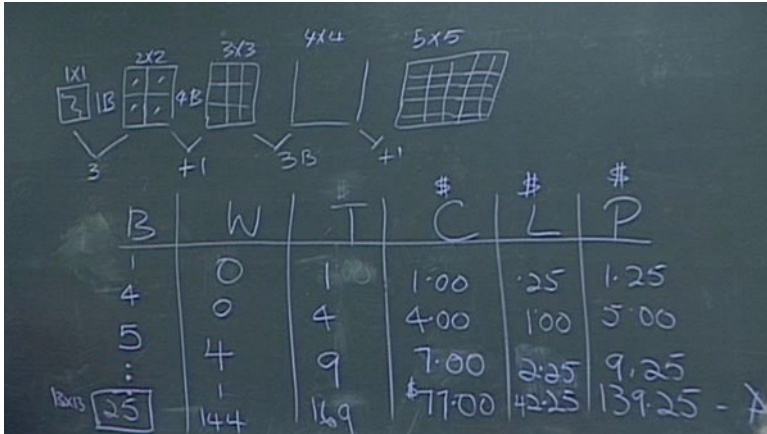 1x1 2x2 3x3 4x4 5x5
3 1B 4B
3 +1 3B +1
$ $ $
B W T C L P
1 0 1 1.00 .25 1.25
4 0 4 4.00 1.00 5.00
5 4 9 7.00 2.25 9.25
13x13 25 144 169 $77.00 42.25 139.25 -